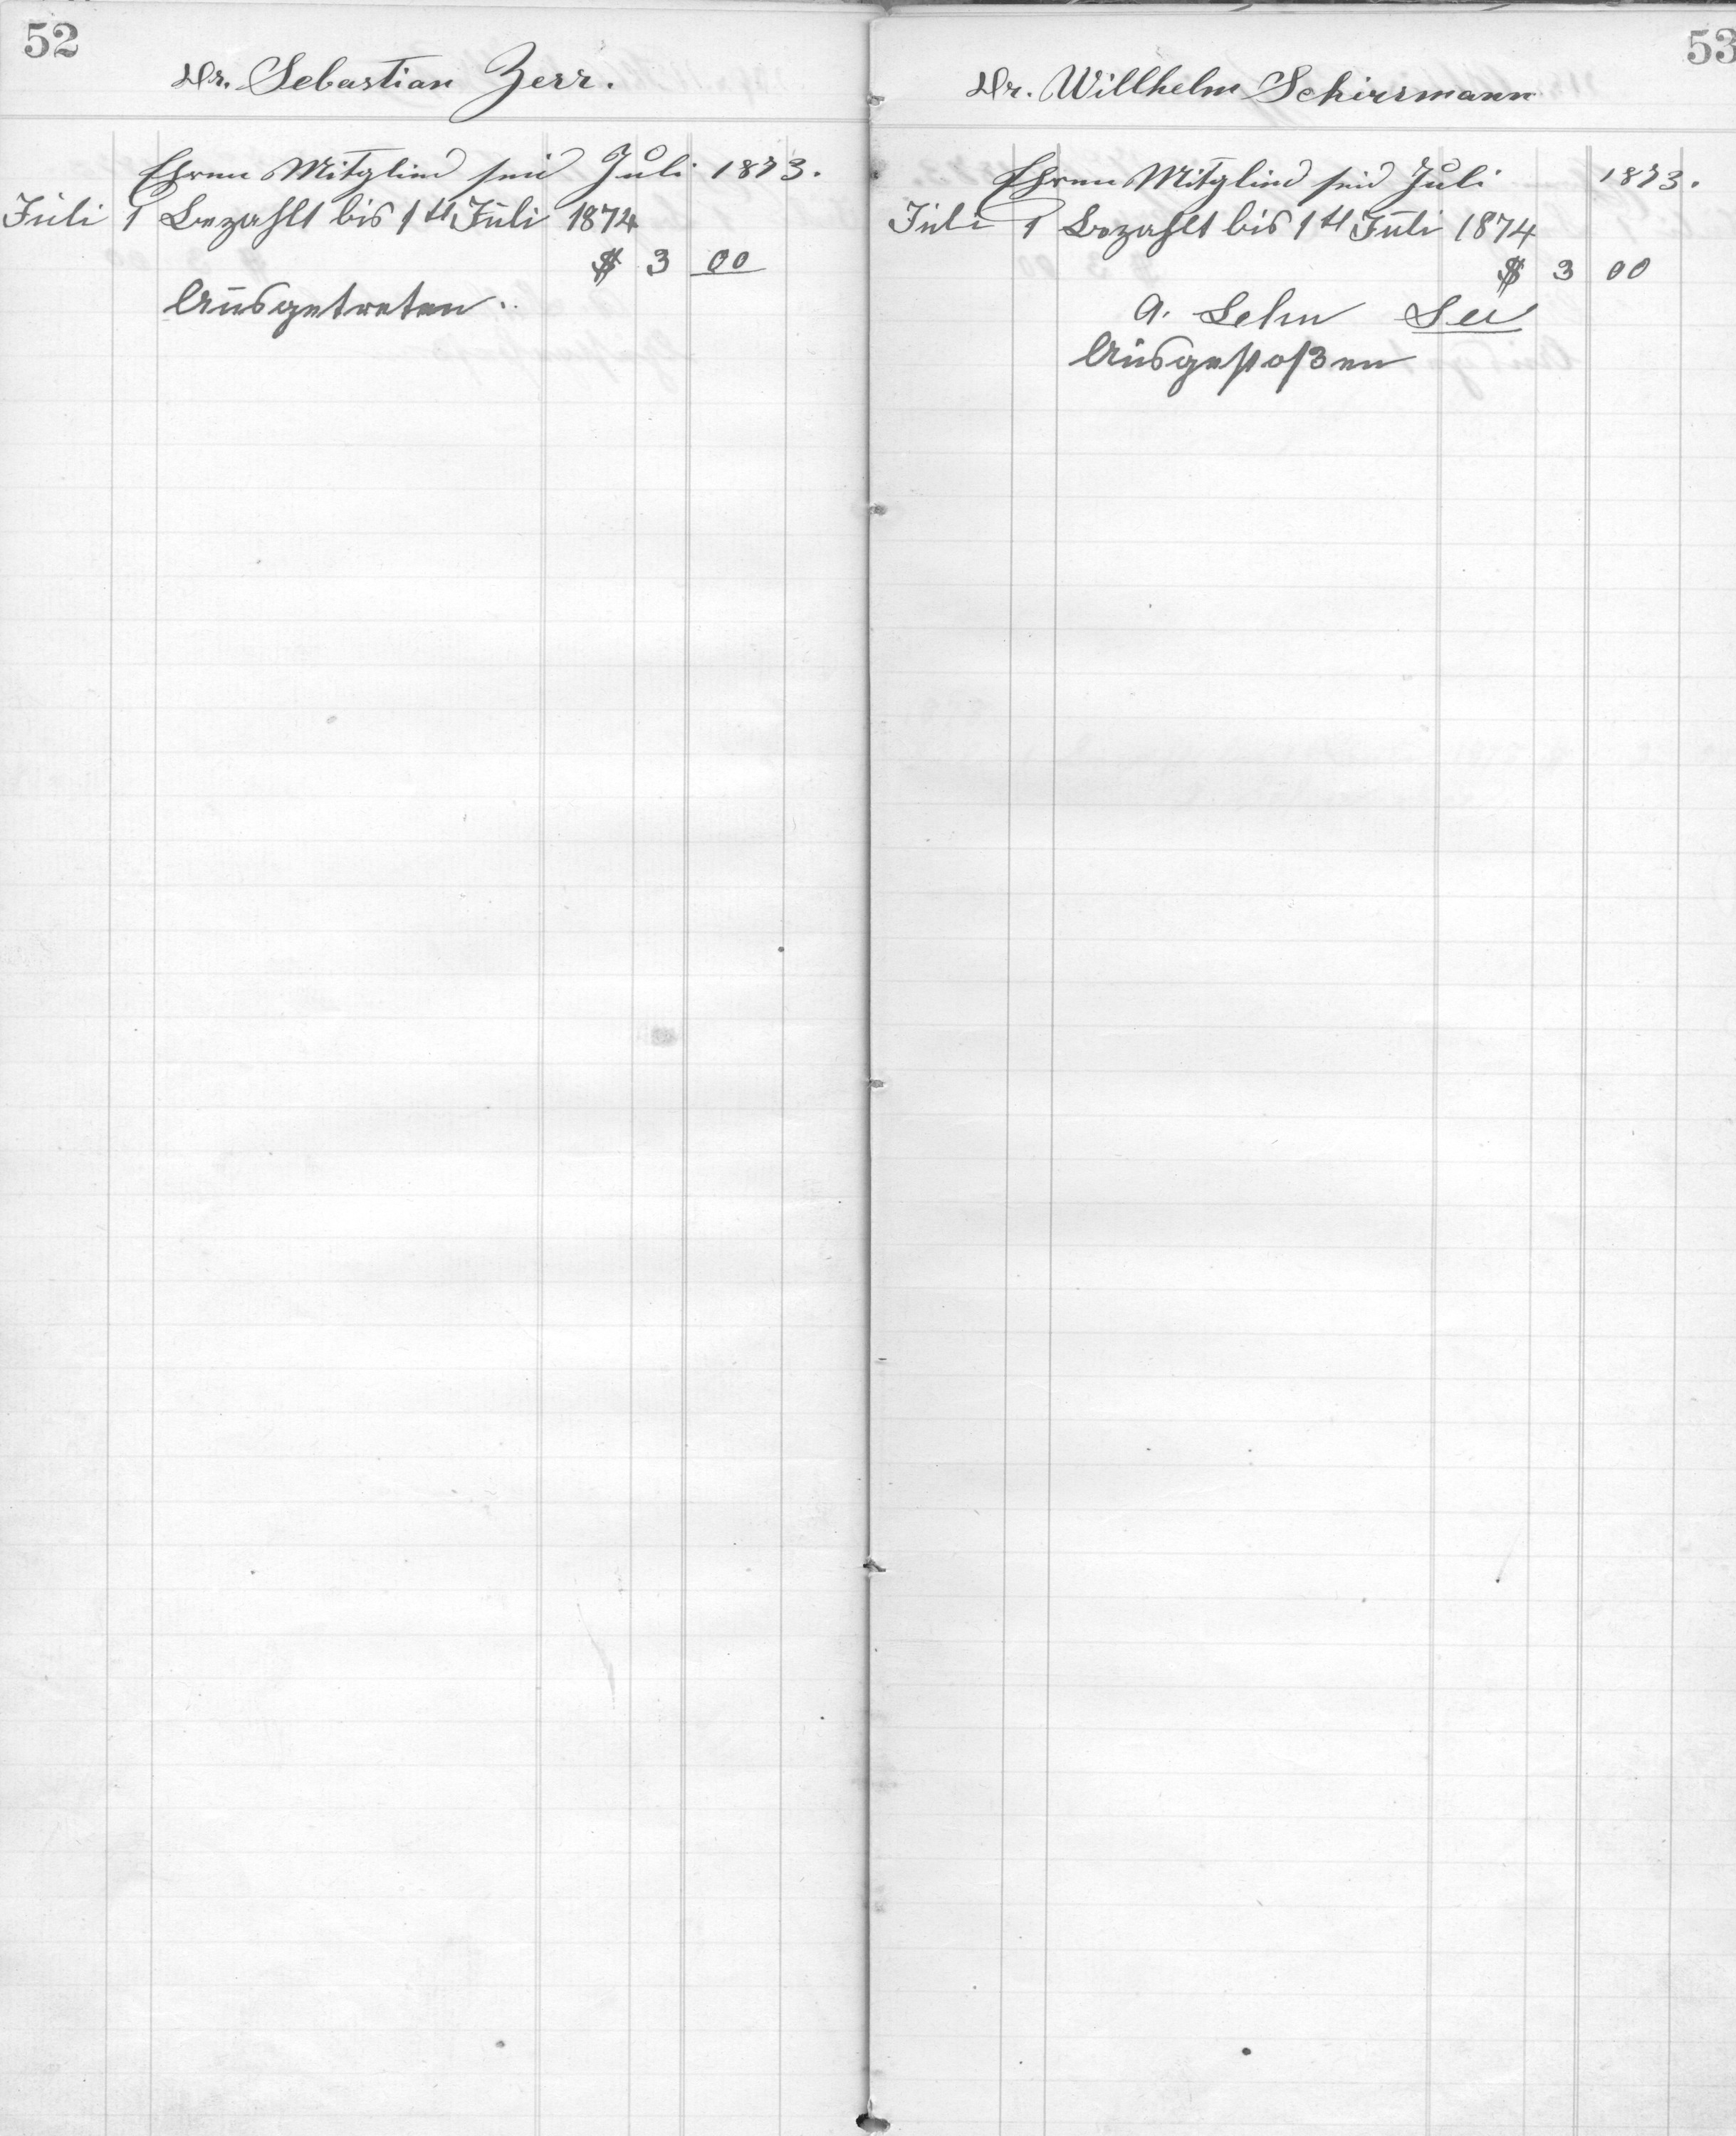 52
Dr. Sebastian Zerr.
Ehren Mitglied seid Juli 1873.
Juli 1 Bezahlt bis 1 tt Juli 1874
$ 3 00
Ausgetreten.
53
Dr. Willhelm Schirrmann
Ehren Mitglied seid Juli 1873.
Juli 1 Bezahlt bis 1 tt Juli 1874
$ 3 00
A. Lehn
Ausgestoßen